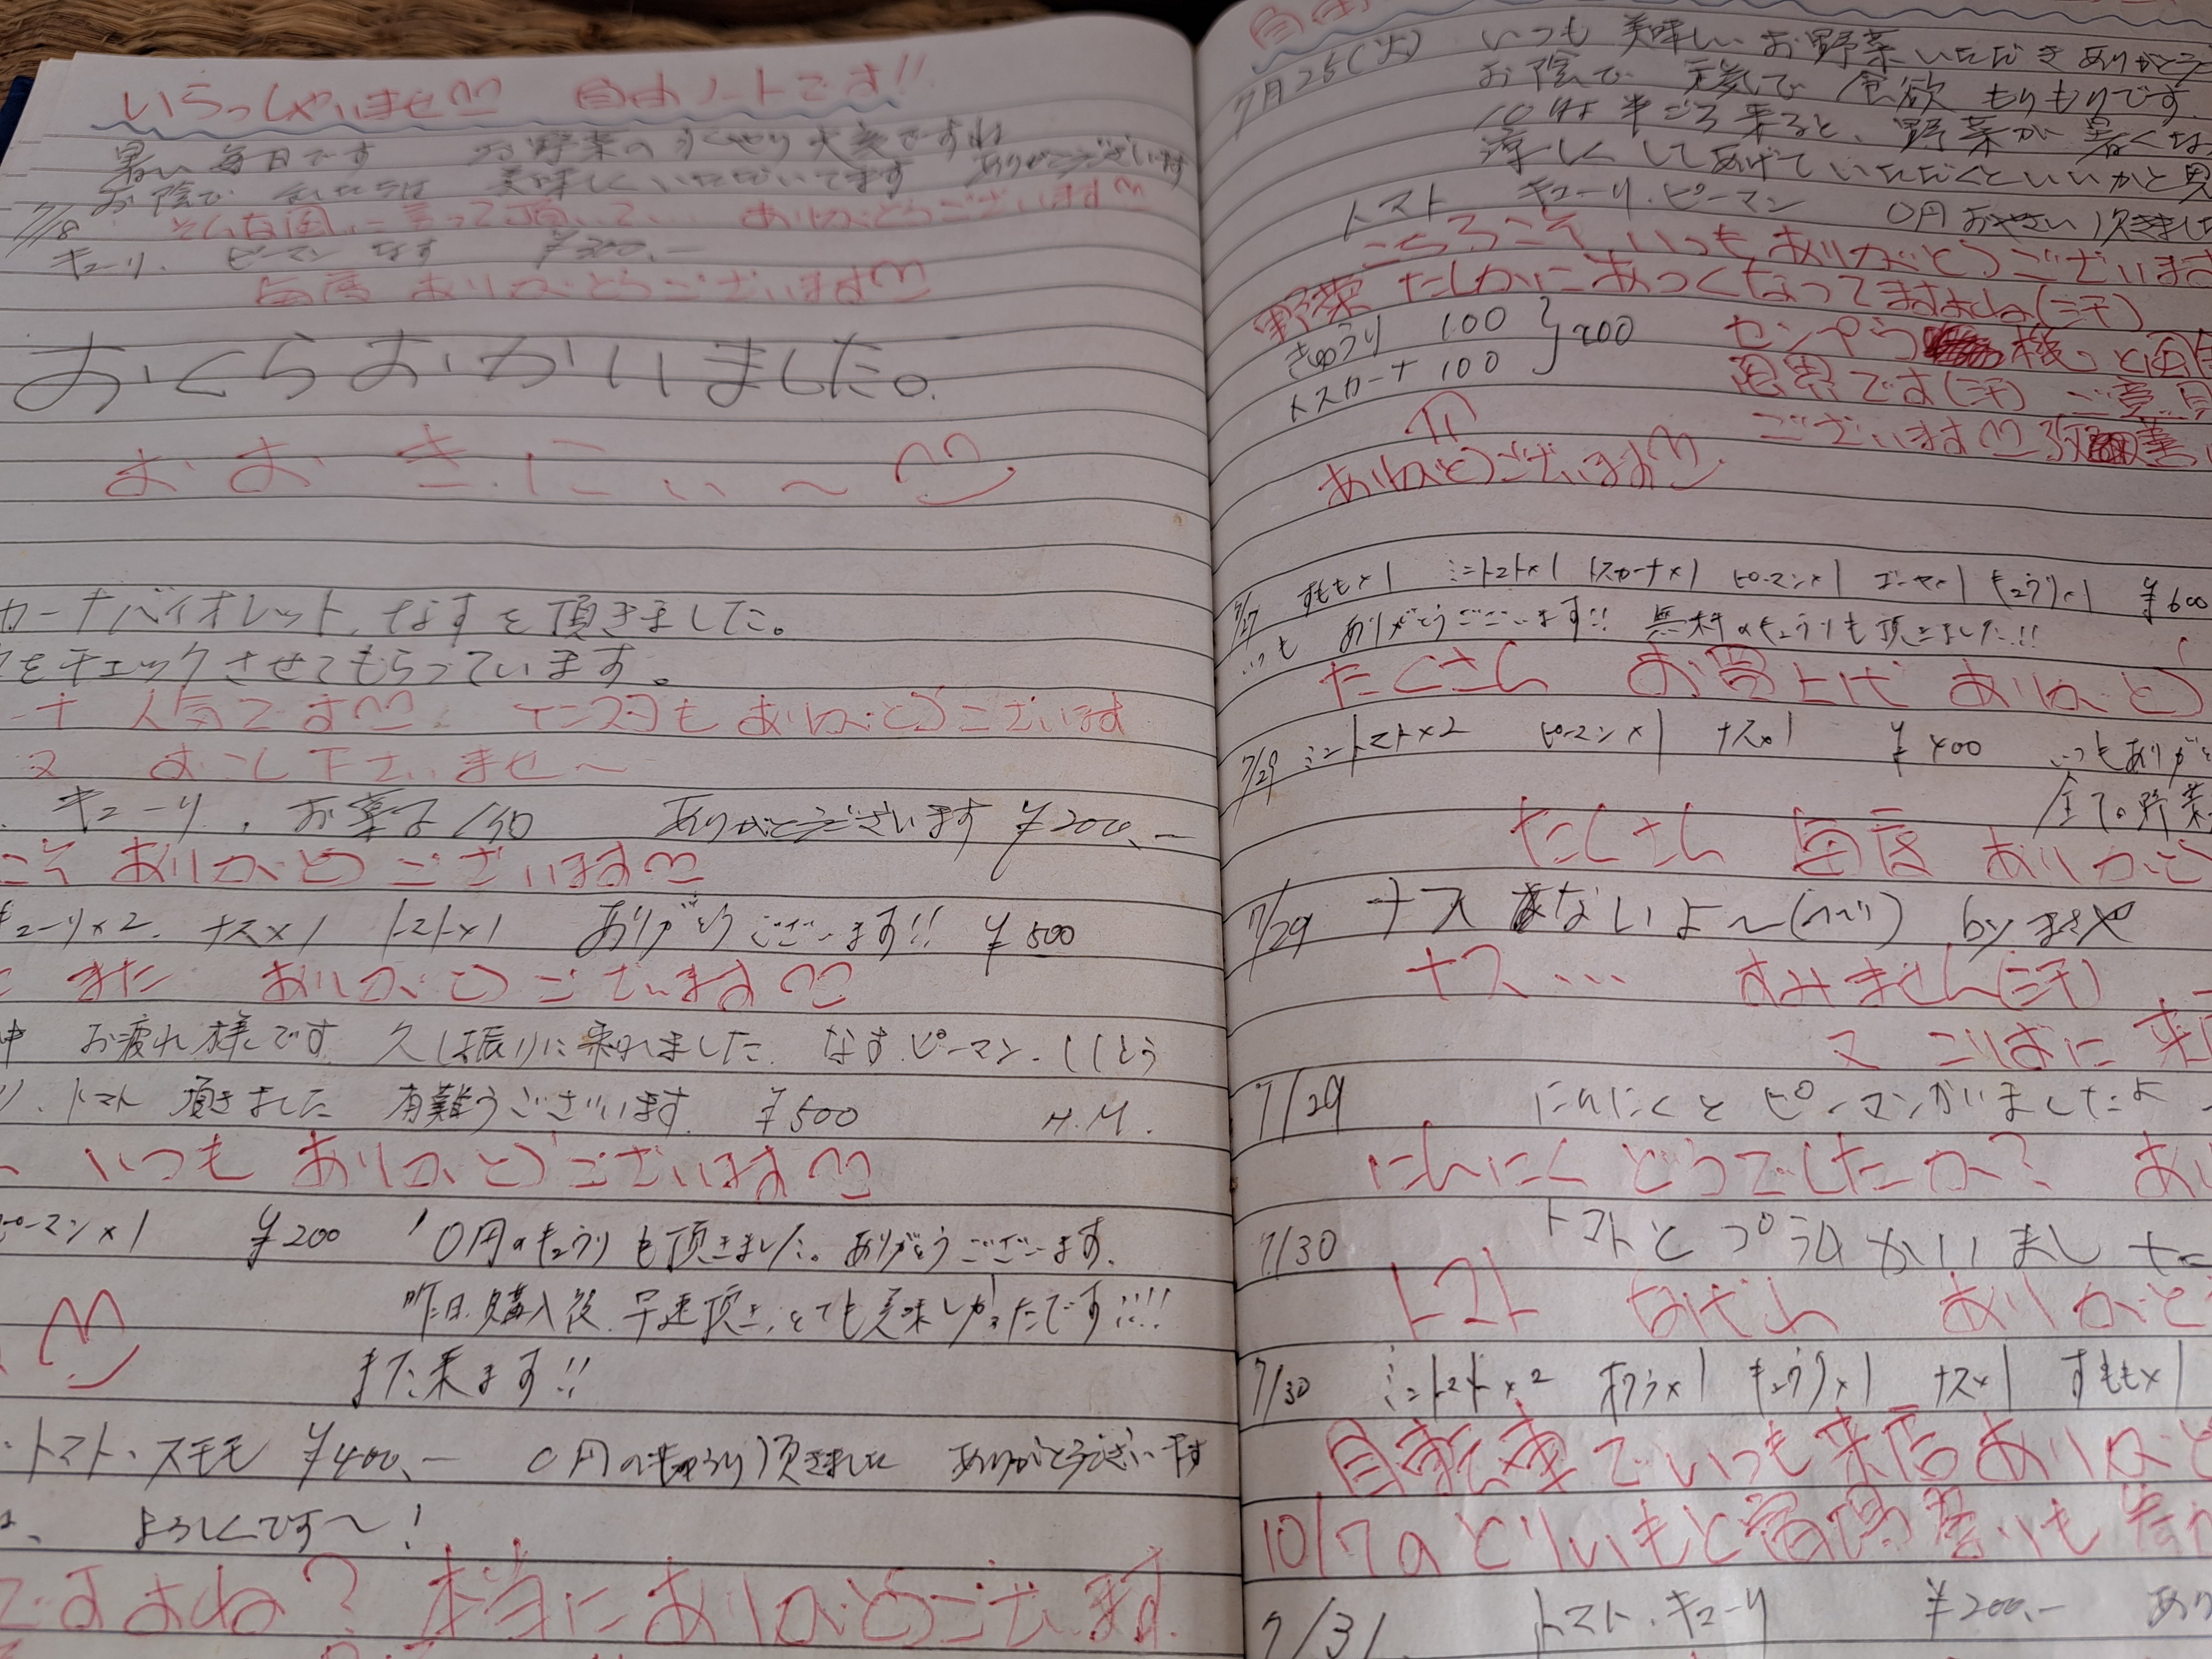 いらっしゃいませ 自由ノートです!!
暑い毎日です お野菜の 大変ですね
お陰で 私たちは 美味しくいただいてます ありがとうございます
7/8 そんな風に言って頂いて… ありがとうございます
キューリ、ピーマン なす ¥300.-
毎度 ありがとうございます
おくらおかいました。
おおきにぃ〜
カーナバイオレット、なすを頂きました。
をチェックさせてもらっています。
ーナ 人気です インスタも ありがとうございます
又 おこし下さいませ〜
キューリ、お菓子 ありがとうございます ¥200.-
こそ ありがとうございます
キューリ×2、ナス×1 トマト×1 ありがとうございます!! ¥500
また ありがとうございます
中 お疲れ様です 久し振りに来れました なす.ピーマン.ししとう
り、トマト 頂きました 有難うございます ¥500 H.M.
いつも ありがとうございます
ピーマン×1 ¥200 0円のきゅうりも頂きました。ありがとうございます。
昨日、購入後、早速頂き、とても美味しかったです!!!!
また来ます!!
・トマト・スモモ ¥400.- 0円のきゅうり頂きました ありがとうございます
よろしくです〜!
ですよね? 本当にありがとうございます
自由
7月25(火) いつも 美味しいお野菜いただき ありがとう
お陰で 元気で 食欲 もりもりです
10時半ごろ来ると、野菜が 暑くな
涼しくしてあげていただくといいかと思
トマト キューリ.ピーマン 0円おやさい頂きました
こちらこそ いつもありがとうございます
野菜 たしかにあつくなってますよね(汗)
きゅうり 100
トスカーナ 100 } 200
センプウ 機っと
限界です(汗) ご意見
ございます 改善
ありがとうございます
7/27 すもも×1 ミニトマト×1 トスカーナ×1 ピーマン×1 ゴーヤ×1 きゅうり×1 ¥600
いつも ありがとうございます!! 無料のきゅうりも頂きました!!
たくさん お買上げ ありがとう
7/29 ミニトマト×2 ピーマン×1 ナス×1 ¥400 いつもありがと
全ての野菜
たくさん 毎度 ありがと
7/29 ナス なないよ〜 by まさや
ナス… すみません(汗)
又 こりずに 来店
7/29 にんにくと ピーマンかいましたよ
にんにく どうでしたか? あり
7/30 トマトと プラムかいました
トマト ありがと
7/30 ミニトマト×2 オクラ×1 きゅうり×1 ナス×1 すもも×1
自転車でいつも来店ありがと
10/7のとりいもと宿場
7/31 トマト.キューリ ¥200.- あり